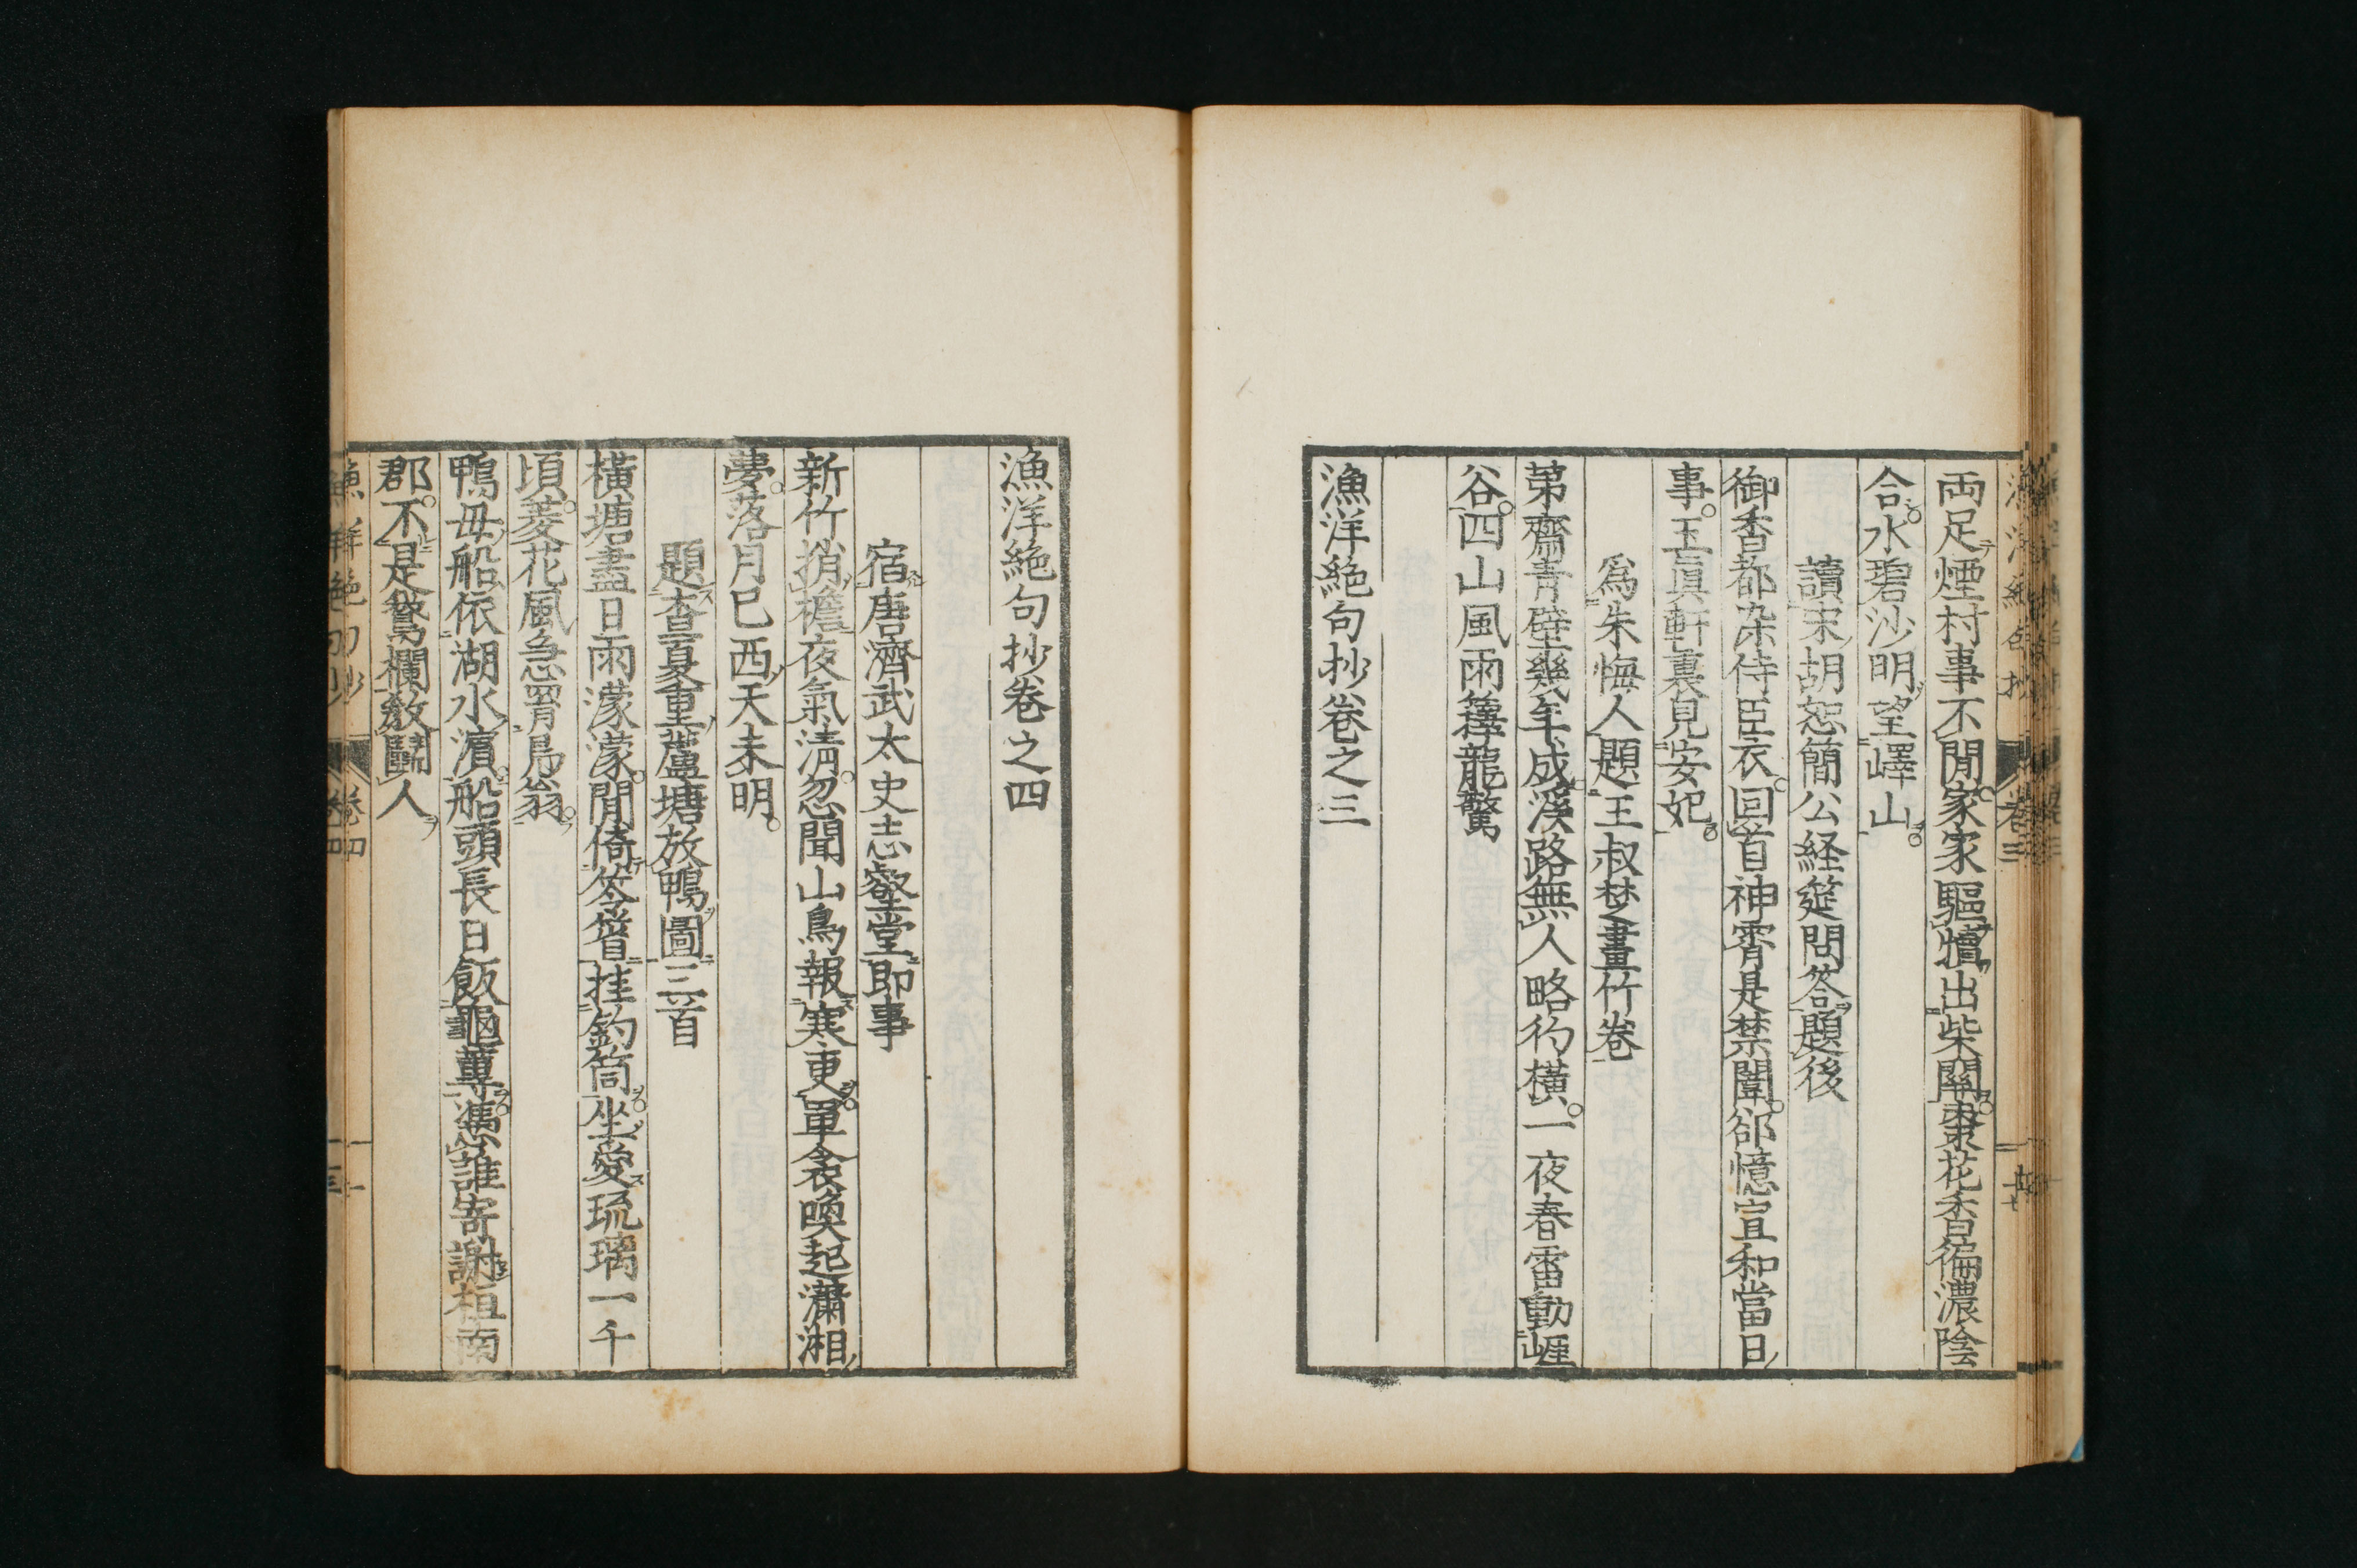 両足煙村事不閒家家驅犢出柴關棗花香徧濃陰
合水碧沙明望嶧山
讀宋胡恕簡公経筵問答題後
御香都染侍臣衣回首神霄是禁闈郤憶宣和當日
事玉眞軒裏見安妃
爲朱悔人題王叔楚畫竹卷
茅齋青壁幾年成溪路無人略彴横一夜春雷動崕
谷四山風雨籜龍驚
漁洋絶句抄卷之三
漁洋絶句抄卷之四
宿唐濟武太史志壑堂即事
新竹捎檐夜氣清忽聞山鳥報寒更單衾喚起瀟湘
夢落月已西天未明
題査夏重蘆塘放鴨圖三首
横塘盡日雨濛濛閒倚笭箵挂釣筒坐愛琉璃一千
頃菱花風急罥鳥翁
鴨毋船依湖水濵船頭長日飯龜蓴慿誰寄謝桓南
郡不是鵞欄敎鬪人
卷四